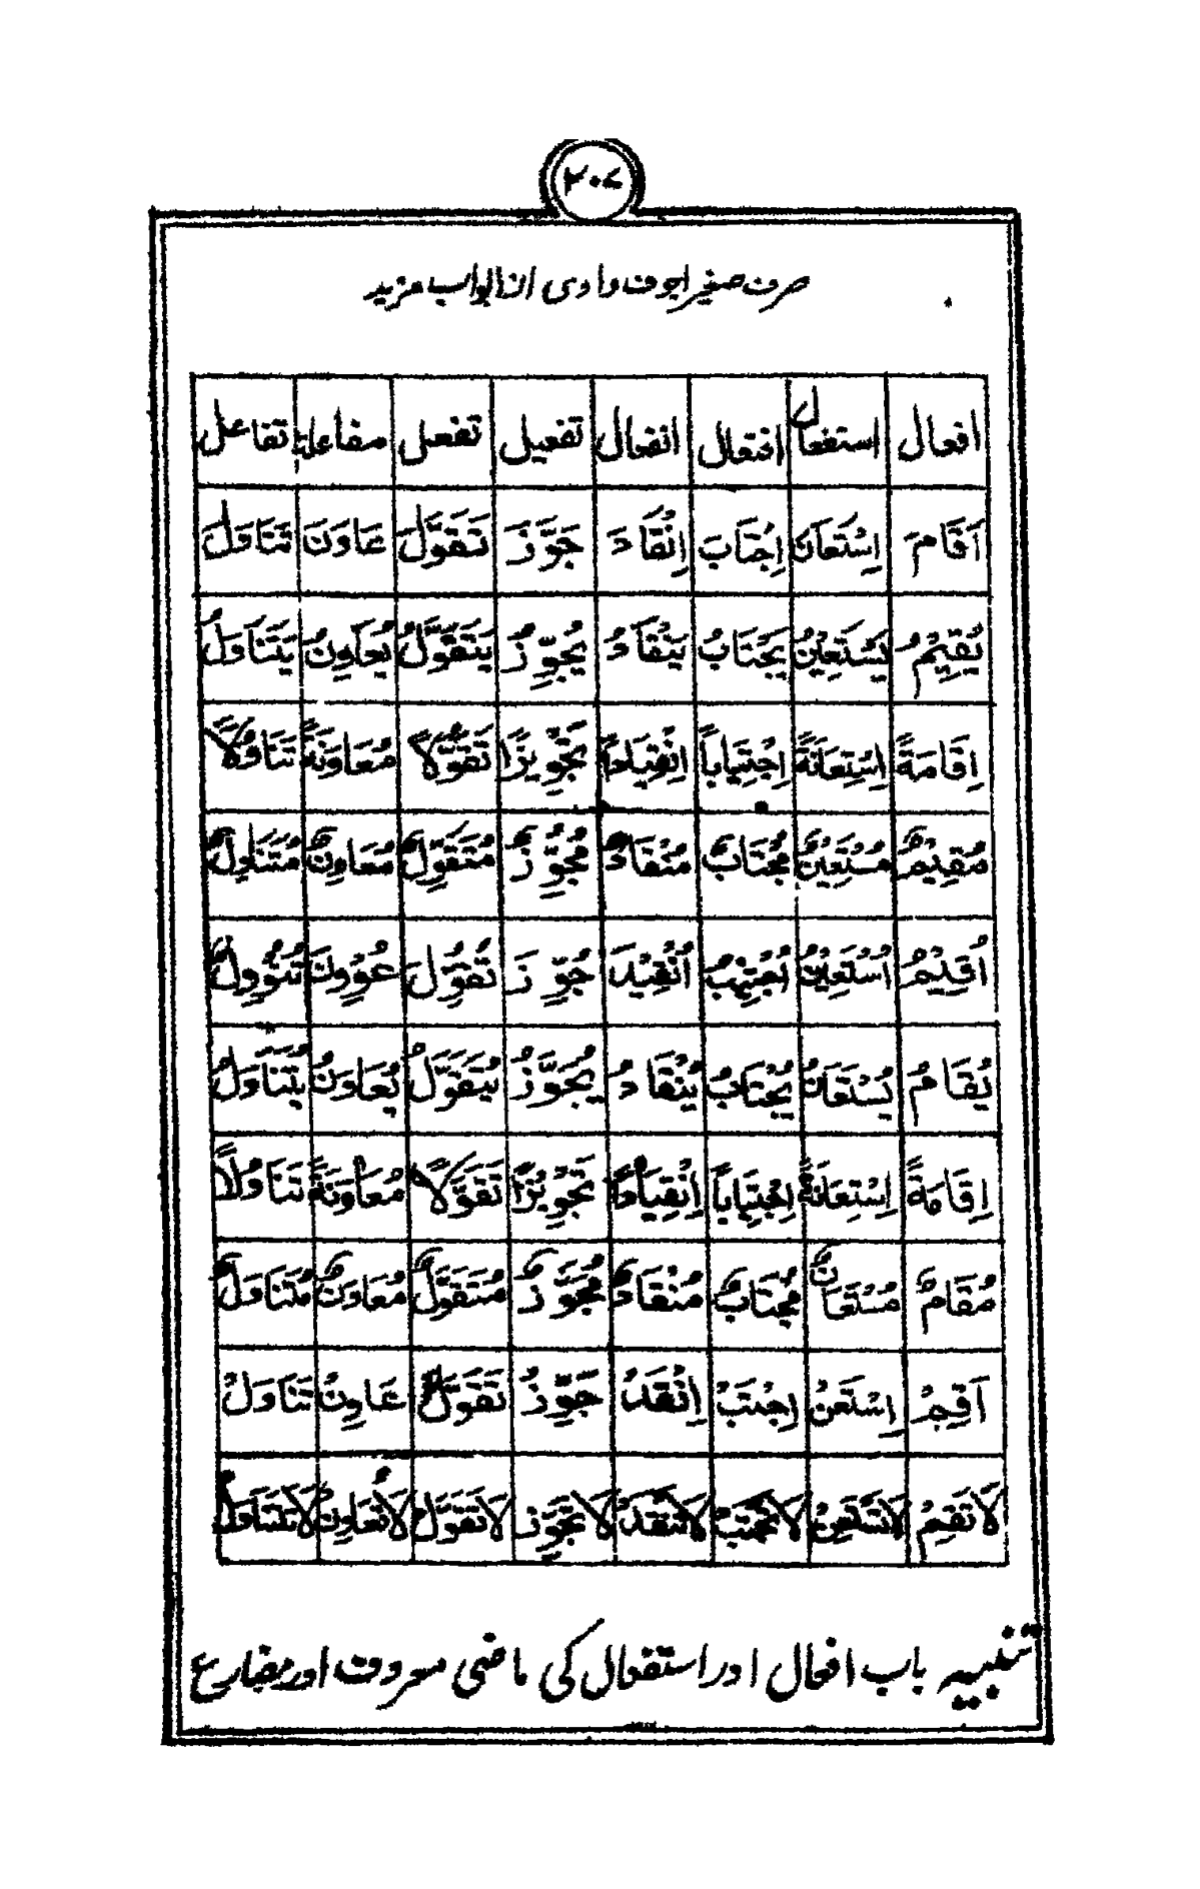 ۲۰۷
صرف صغیر اجوف وادی از ابواب مزید
افعال استفعال افتعال انفعال تفعیل تفعل مفاعلة تفاعل
اَقَامَ اِسْتَعَانَ اِجْتَابَ اِنْقَادَ جَوَّزَ تَقَوَّلَ عَاوَنَ تَنَاوَلَ
يُقِيْمُ يَسْتَعِيْنُ يَجْتَابُ يَنْقَادُ يُجَوِّزُ يَتَقَوَّلُ يُعَاوِنُ يَتَنَاوَلُ
اِقَامَةً اِسْتِعَانَةً اِجْتِيَاباً اِنْقِيَاداً تَجْوِيْزًا تَقَوُّلاً مُعَاوَنَةً تَنَاوُلاً
مُقِيْمٌ مُسْتَعِيْنٌ مُجْتَابٌ مُنْقَادٌ مُجَوِّزٌ مُتَقَوِّلٌ مُعَاوِنٌ مُتَنَاوِلٌ
اُقِيْمَ اُسْتُعِيْنَ اُجْتِيْبَ اُنْقِيْدَ جُوِّزَ تُقُوِّلَ عُوْوِنَ تُنُوْوِلَ
يُقَامُ يُسْتَعَانُ يُجْتَابُ يُنْقَادُ يُجَوَّزُ يُتَقَوَّلُ يُعَاوَنُ يُتَنَاوَلُ
اِقَامَةً اِسْتِعَانَةً اِجْتِيَاباً اِنْقِيَاداً تَجْوِيْزًا تَقَوُّلاً مُعَاوَنَةً تَنَاوُلاً
مُقَامٌ مُسْتَعَانٌ مُجْتَابٌ مُنْقَادٌ مُجَوَّزٌ مُتَقَوَّلٌ مُعَاوَنٌ مُتَنَاوَلٌ
اَقِمْ اِسْتَعِنْ اِجْتَبْ اِنْقَدْ جَوِّزْ تَقَوَّلْ عَاوِنْ تَنَاوَلْ
لَا تُقِمْ لَا تَسْتَعِنْ لَا تَجْتَبْ لَا تَنْقَدْ لَا تُجَوِّزْ لَا تَتَقَوَّلْ لَا تُعَاوِنْ لَا تَتَنَاوَلْ
تنبیہ باب افعال اور استفعال کی ماضی معروف اور مضارع